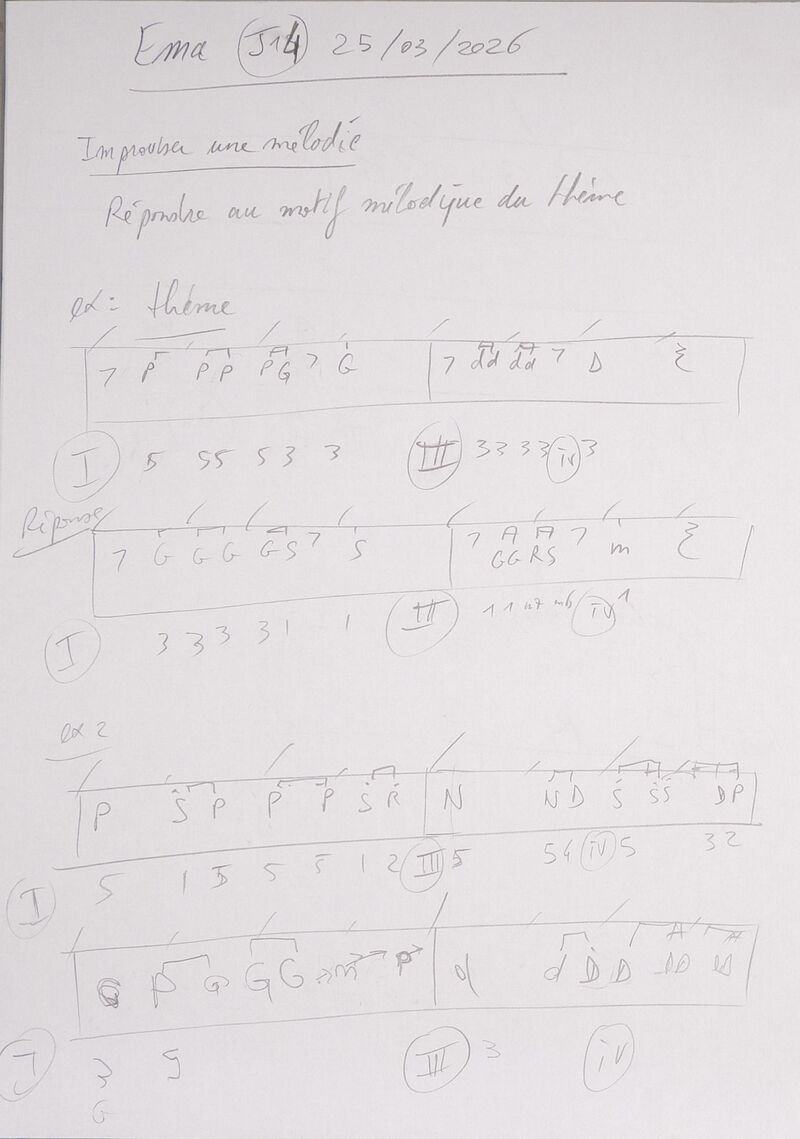 Ema J14 25/03/2026
Improviser une mélodie
Répondre au motif mélodique du thème
ex: thème
7 P P P P G 7 G 7 d d d d 7 D
I 5 5 5 5 3 3 III 3 3 3 3 iv 3
Réponse
7 G G G G S 7 S 7 G G R S 7 m
I 3 3 3 3 1 1 III 1 1 iv 1
ex 2
P S P P P S R N N D S S S D P
I 5 1 5 5 5 1 2 III 5 5 4 iv 5 3 2
P G G G m P d d D D D D
I 3 5 III 3 iv
G